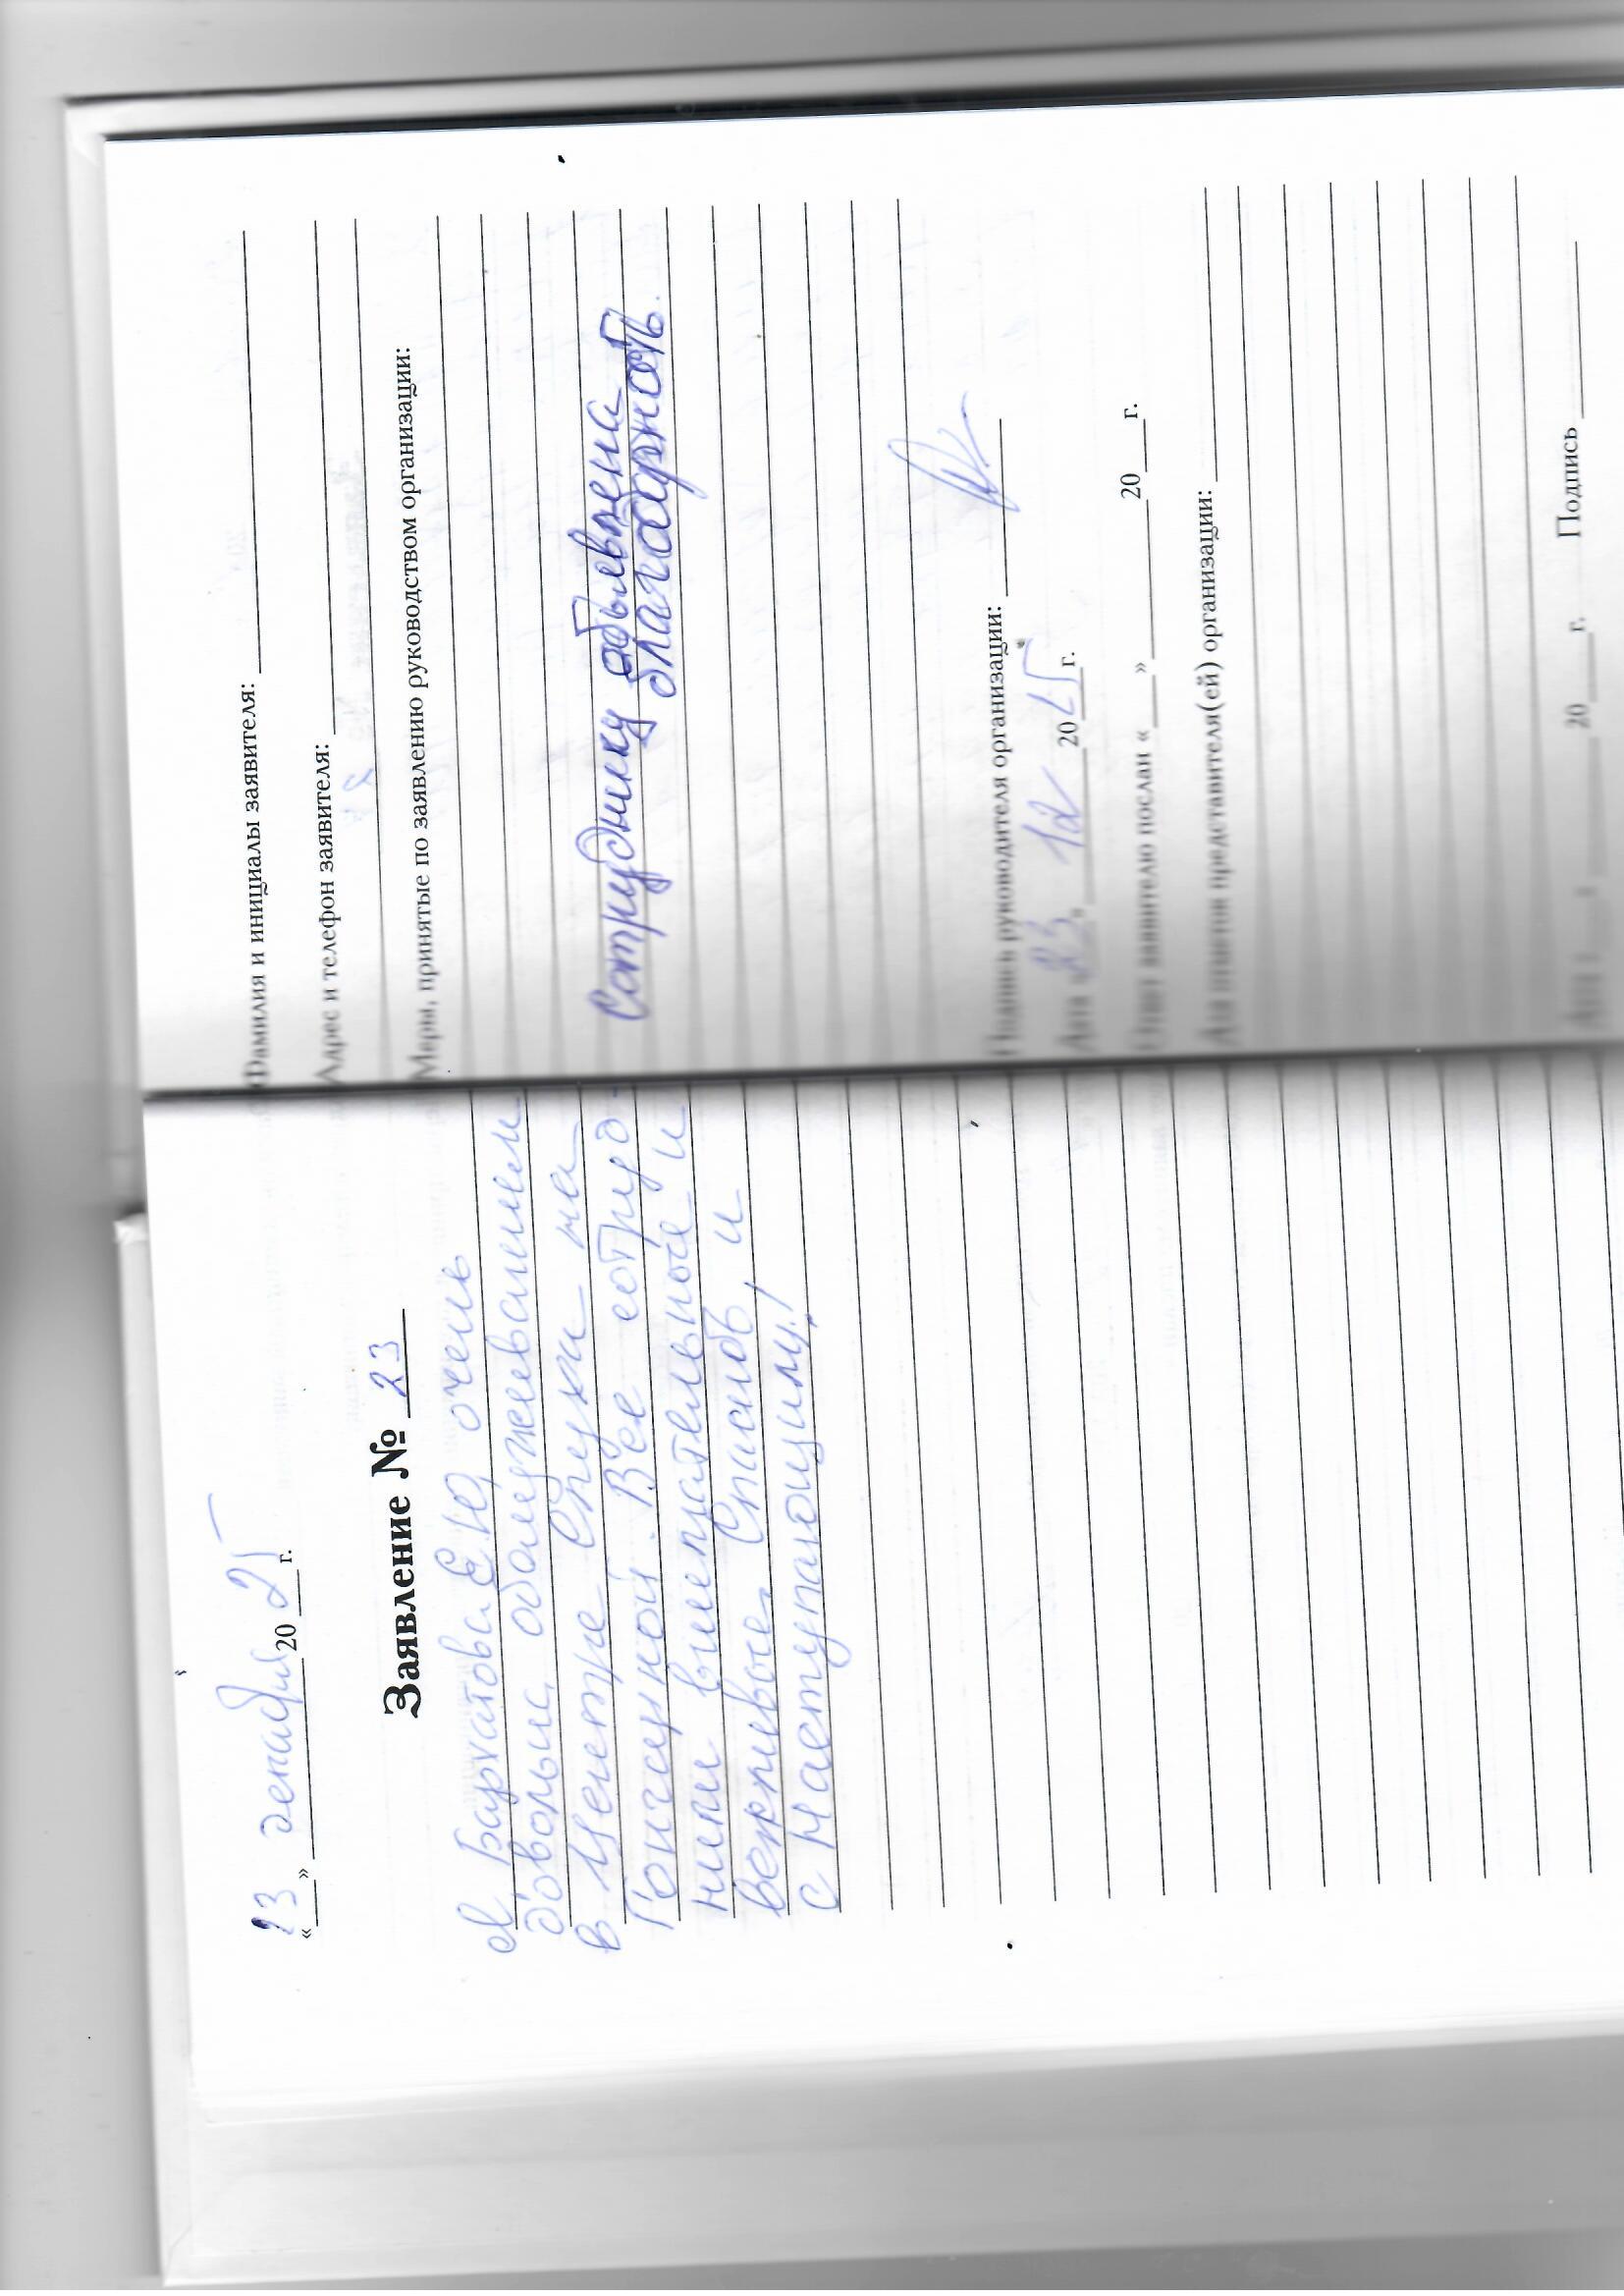 «23» декабря 2025 г.
Заявление № 23
Я Бархатова Е.Ю, очень
довольна обслуживанием
в Центре Слуха на
Гончарной. Все сотруд-
ники внимательные и
вежливые. Спасибо, и
с Наступающим!
Фамилия и инициалы заявителя:
Адрес и телефон заявителя:
Меры, принятые по заявлению руководством организации:
Сотруднику объявлена
благодарность.
Подпись руководителя организации:
Дата «23» 12 2025 г.
Ответ заявителю послан «___» 20___г.
Для отметок представителя(ей) организации:
Дата « » 20___г. Подпись